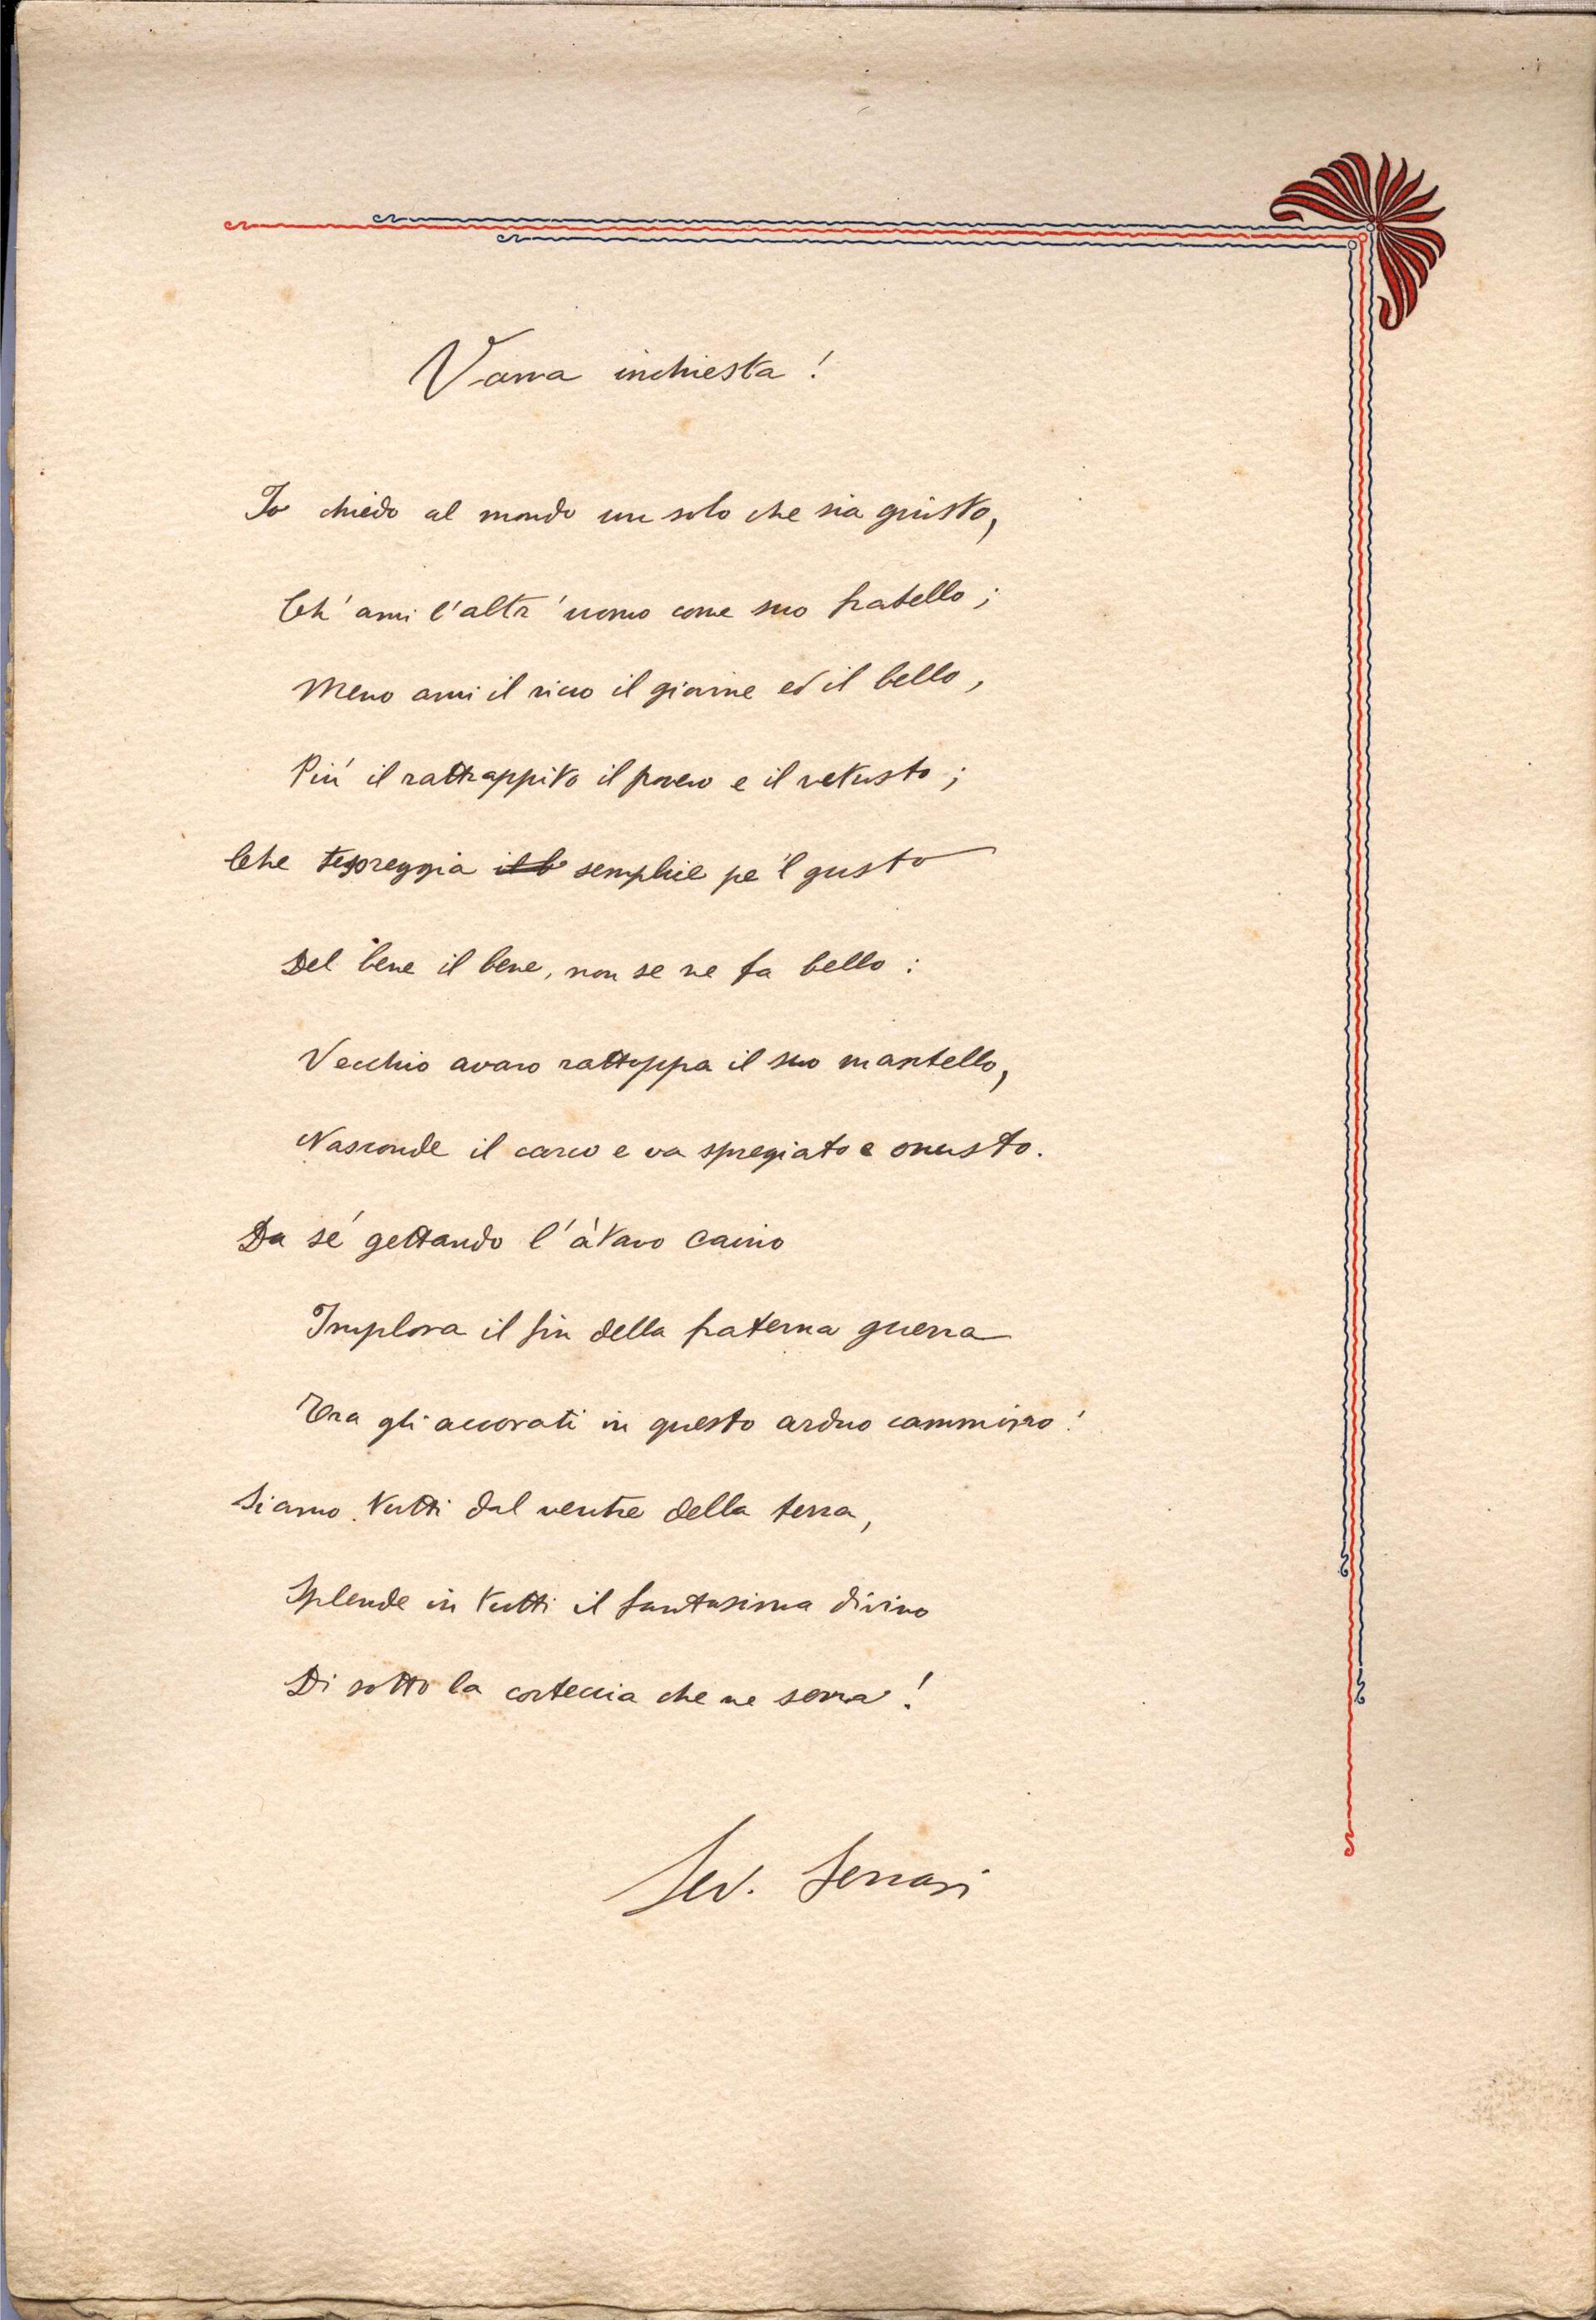 Vana inchiesta!
Io chiedo al mondo un solo che sia giusto,
Ch'ami l'altr'uomo come suo fratello;
Meno ami il ricco il giovine ed il bello,
Piú il rattrappito il povero e il vetusto;
Che tesoreggia il b semplice pe 'l gusto
Del bene il bene, non se ne fa bello:
Vecchio avaro rattoppa il suo mantello,
Nasconde il carco e va spregiato e onusto.
Da sé gettando l'àtavo Caino
Implora il fin della fraterna guerra
Tra gli accorati in questo arduo cammino!
Siamo tutti dal ventre della terra,
Splende in tutti il fantasima divino
Di sotto la corteccia che ne serra!
Sev. Ferrari